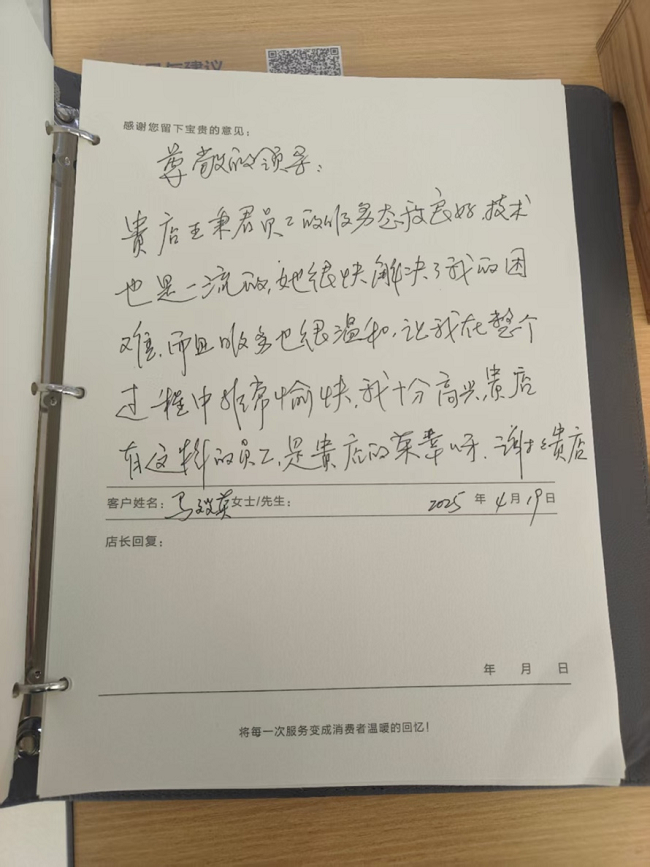 见与建议
感谢您留下宝贵的意见：
尊敬的领导：
貴店王秉君员工的服务态度良好，技术
也是一流的，她很快解决了我的困
难，而且服务也很温和，让我在整个
过程中非常愉快，我十分高兴，贵店
有这样的员工，是貴店的荣幸呀，谢谢贵店
客户姓名：马 英女士/先生： 2025 年 4 月 19 日
店长回复：
年 月 日
将每一次服务变成消费者温暖的回忆！